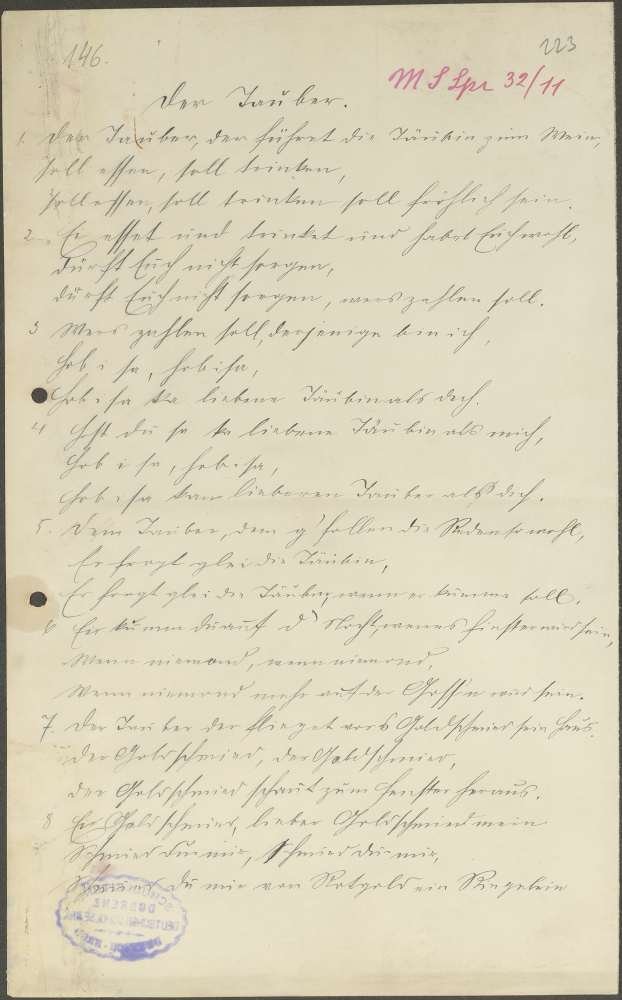 146.
223
MS Spr 32/11
Der Tauber.
1. Der Tauber, der führet die Täubin zum Wein,
soll essen, soll trinken,
soll essen, soll trinken soll fröhlich sein.
2. Er esset und trinket und habet Euch wohl,
Dürft Euch nicht sorgen,
dürft Euch nicht sorgen, wers zahlen soll.
3 Wers zahlen soll, derjenige bin ich,
Hob i ja, hob i ja,
Hob i ja ka liebene Täubin als dich.
4 Hst du ja ka liebene Täubin als mich,
Hob i ja, hob i ja,
Hob i ja kan lieberen Tauber als dich.
5. Dem Tauber, dem g'fallen die Reden so wohl,
Er fragt glei die Täubin,
Er fragt glei die Täubin, wenn er kumme soll.
6 Ei kumm du auf d' Nocht, wenns finster wird sein,
Wenn niemand, wenn niemand,
Wenn niemand mehr auf der Goss'n wird sein.
7. Der Tauber der flieget vors Goldschmied sein Haus.
Der Goldschmied, der Goldschmied,
der Goldschmied schaut zum Fenster heraus.
8 Ei Goldschmied, lieber Goldschmied mein
Schmied du mir, schmied du mir,
Schmied du mir von Rotgold ein Ringelein